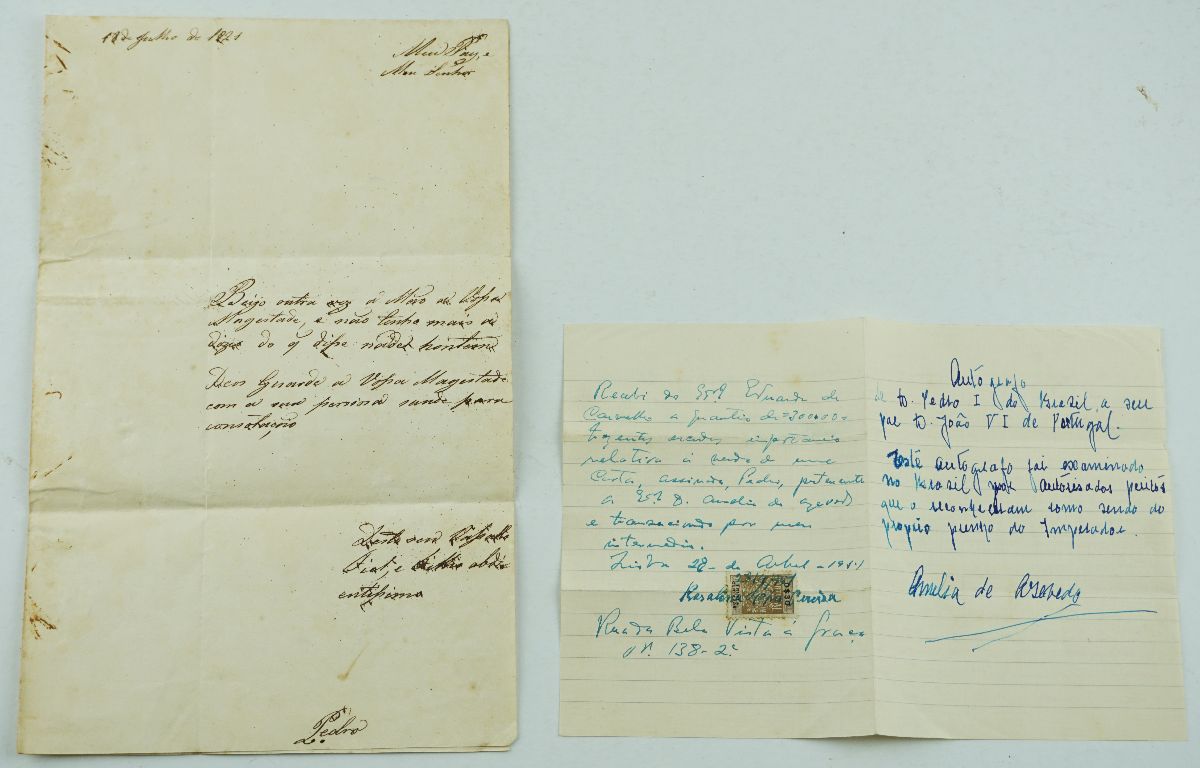 17 de Julho de 1821
Meu Pay, e
Meu Senhor
Beijo outra vez á Mão de Vossa
Magestade, e não tenho mais a
dizer do q disse hontem
Deos Guarde a Vossa Magestade
com a sua persioza saude para
consolação
Deste seu
Leal, e Filho obdi
entissimo
Pedro
Recebi do Exmº Eduardo de
Carvalho a quantia de 300$00
trezentos escudos importancia
relativa á venda de uma
Carta, assinada, Pedro, pertencente
a Exmª D. Amelia de Azevedo
e transacionada por meu
intermedio.
Lisboa 28 de Abril - 1951
Pereira
Rua da Bela Vista á Graça
nº. 138-2º
Autografo
de D. Pedro I do Brasil, a seu
pae D. João VI de Portugal.
Este autógrafo foi examinado
no Brasil por autorisados peritos
que o reconheceram como sendo do
proprio punho do Imperador.
Amelia de Azevedo